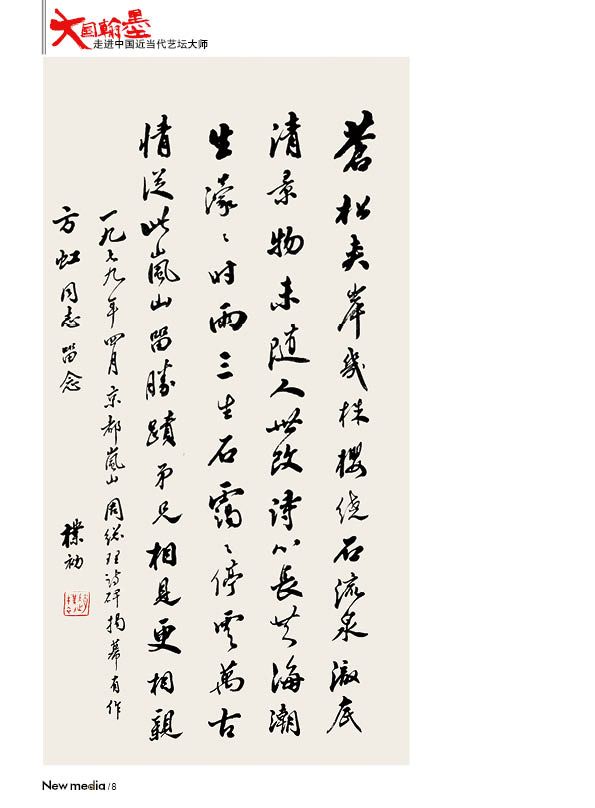 大国翰墨
走进中国近当代艺坛大师
蒼松夹岸峯幾株櫻繞石流泉澈底
清景物未随人世改詩心長共海潮
生濛〻时雨三生石靄〻停雲萬古
情从此嵐山留勝蹟弟兄相見更相親
一九七九年四月京都嵐山周総理诗碑揭幕有作
方虹同志留念
樸初
New media / 8